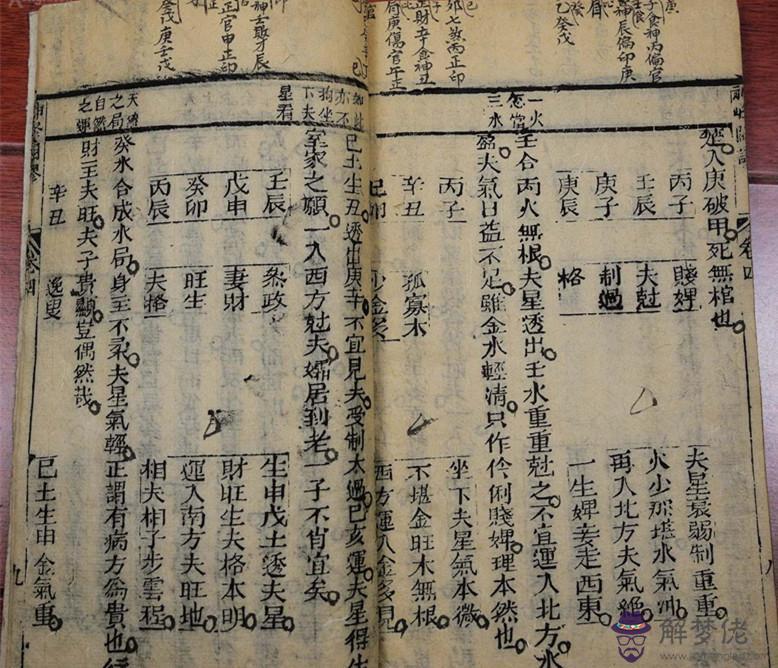 卷四
入庚破甲死無棺也
丙子 賤婢 夫星衰弱制重重
壬辰 夫尅 火少那堪水氣沖
庚子 制過 再入北方夫氣絕
庚辰 格 一生婢妾走西東
一火
怎當
三水
壬合丙火無根夫星透出壬水重重尅之不宜運入北方水
盈夫氣日益不足雖金水輕清只作伶俐賤婢理本然也
丙子 坐下夫星氣本微
辛丑 孤寡木 不堪金旺木無根
己卯 少金多 西方運入金多見
亦不
拘坐
下夫
星看
己土生丑透出庚辛不宜見夫受制太過己亥運夫星得生
室家之願一入西方尅夫孀居到老一子不肖宜矣
壬辰 參政 生申戊土透夫星
戊申 妻財 財旺生夫格本明
癸卯 旺生 運入南方夫旺地
丙辰 夫格 相夫相子步雲程
天然
之局
自然
之運
癸水合成水局身主不弱夫星氣輕正謂有病方為貴也
財主夫旺夫子貴顯豈偶然哉
辛丑 逸叟 己土生申金氣重
卷四
九
解梦佬